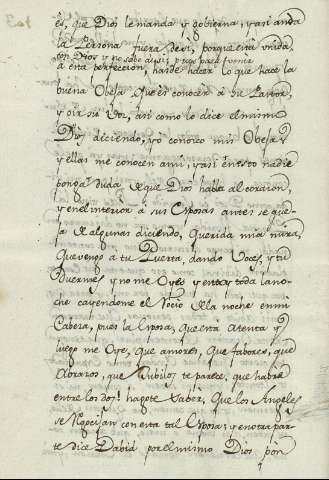 es, que Dios le manda y gobierna, y asi anda
la Persona fuera de si, porque esta unida
con Dios y no sabe de si, pues para
a esta perfeccion, ha de hacer lo que hace la
buena Obeja que es conocer a su Pastor,
y oir su Voz, asi como lo dice el mismo
Dios diciendo, yo conosco mis Obejas
y ellas me conocen a mi, y asi en esto nadie
ponga duda de que Dios habla al corazon,
y en el interior a sus Esposas antes se que-
ja de algunas diciendo, Querida mia mira,
que vengo a tu Puerta, dando Voces, y tu
Duermes y no me Oyes y estoy toda la no-
che cayendome el Rocio de la noche en mi
Cabeza, pues la Esposa, que esta Atenta y
luego me Oye, que amores, que fabores, que
Abrazos, que Jubilos te parece, que habra
entre los dos! hagote saber, que los Angeles
se Rogocijan con esta tal Esposa, y en otra par-
te dice Dabid por el mismo Dios, pon